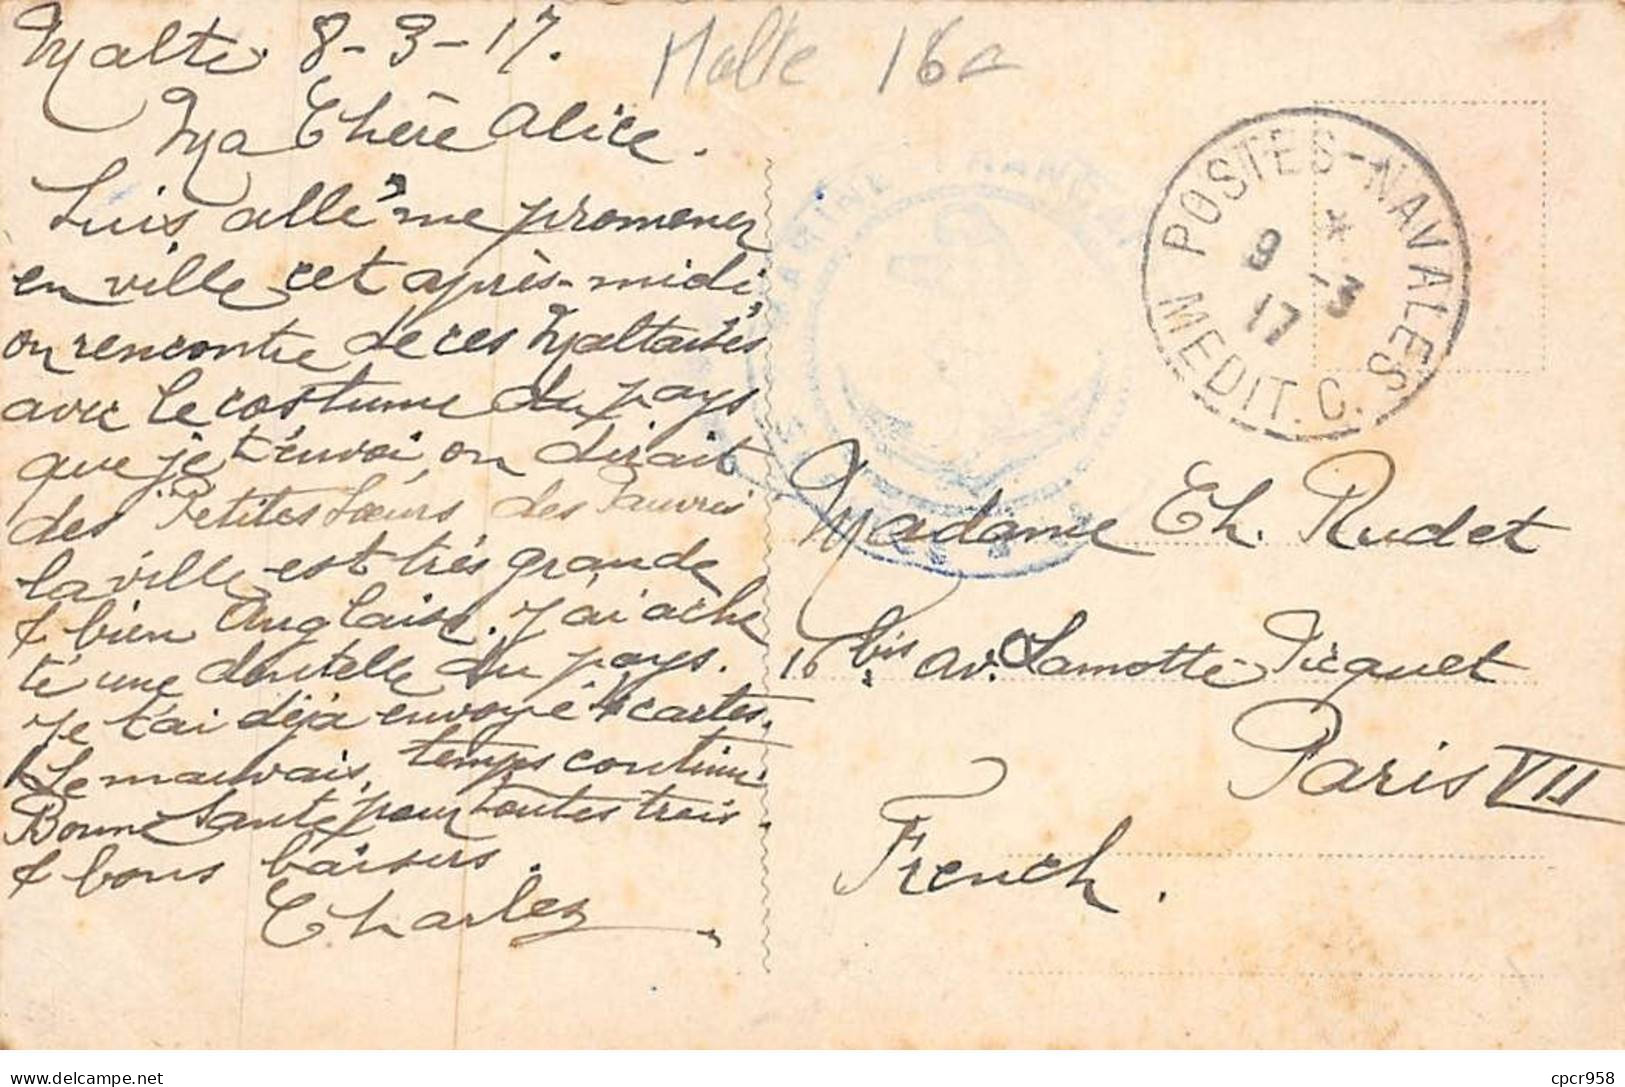 Malte 8-3-17.
Malte 16a
Ma Chère Alice.
Suis allé me promener
en ville cet après-midi,
on rencontre de ces Maltaises
avec le costume du pays
que je t'envoi, on dirait
des Petites Sœurs des Pauvres
la ville est très grande
& bien Anglaise. J'ai ache
té une dentelle du pays.
Je t'ai déjà envoyé 4 cartes.
Le mauvais temps continue
Bonne Santé pour toutes trois.
& bons baisers.
Charles
MARINE FRANÇAISE
POSTES-NAVALES
*
9 -3
17
MEDIT. C.
Madame Ch. Rudet
16 bis av. Lamotte-Picquet
Paris VII
French.
delcampe.net
cpcr958